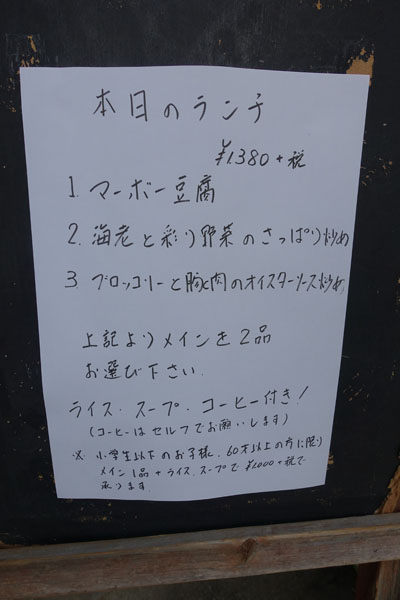 本日のランチ
¥1,380+税
1. マーボー豆腐
2. 海老と彩り野菜のさっぱり炒め
3. ブロッコリーと胸肉のオイスターソース炒め
上記よりメインを2品
お選び下さい.
ライス・スープ・コーヒー付き!
(コーヒーはセルフでお願いします)
※ 小学生以下のお子様、60才以上の方に限り
メイン1品+ライス、スープで ¥1,000+税で
承ります.